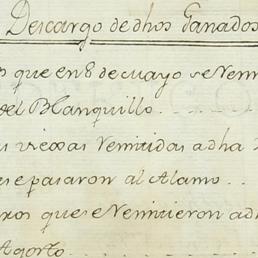 Descargo de dhos Ganados
que en 8 de mayo se Remi
del Blanquillo
viexas Remitidas adha
se pasaron al Alamo
que se Remitieron ad
Agosto